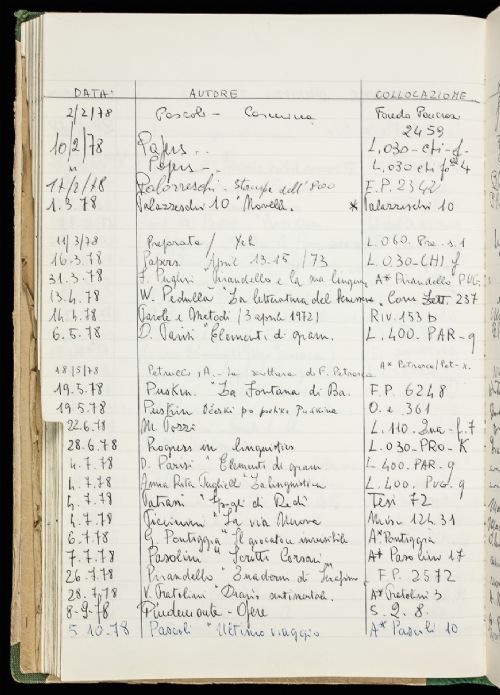 DATA: AUTORE COLLOCAZIONE
2/2/78 Pascoli - Carmina Fondo Pancrazi
2459
10/2/78 Papers .. L.030-chi-f-
" Papers - .. L.030 chi f 4
17/2/78 Palazzeschi - Stampe dell'800 F.P. 2342
1.3.78 Palazzeschi 10 "Novelle * Palazzeschi 10
11/3/78 Preparata / L.060. Pre. s. 1
16.3.78 Papers April 13-15 /73 L.030-CHI f
31.3.78 F. Puglisi Pirandello e la sua lingua A* Pirandello PUG
13.4.78 W. Pedullà "La letteratura del benessere Com 237
14.4.78 Parole e Metodi (3 aprile 1972) Riv. 153 b
6.5.78 D. Parisi "Elementi di gram. L.400. PAR-g
18/5/78 Petrucci, A. - La scrittura di F. Petrarca A* Petrarca/Pet-
19.5.78 Puskin. "La Fontana di Ba. F.P. 6248
19.5.78 Puskin Očerki po Puškina O. e 361
22.6.78 M. Pozzi L.110. f.7
28.6.78 Progress in linguistics L.030-PRO-K
4.7.78 D. Parisi Elementi di gram L 400. PAR-g
4.7.78 Anna Rita Puglielli "La linguistica L. 400. PUG. g
4.7.78 di Redi Tesi 72
4.7.78 Piccioni "La via Nuova Misc 124.31
6.7.78 G. Pontiggia "Il giocatore invisibile A* Pontiggia
7.7.78 Pasolini "Scritti Corsari" A* Pasolini 17
26.7.78 Pirandello "Quaderni di Serafino F.P. 2572
28.7.78 V. Pratolini "Diario sentimentale. A* Pratolini 3
8-9.78 Pindemonte - Opere S. 2. 8.
5.10.78 Pascoli "Ultimo viaggio A* Pascoli 10